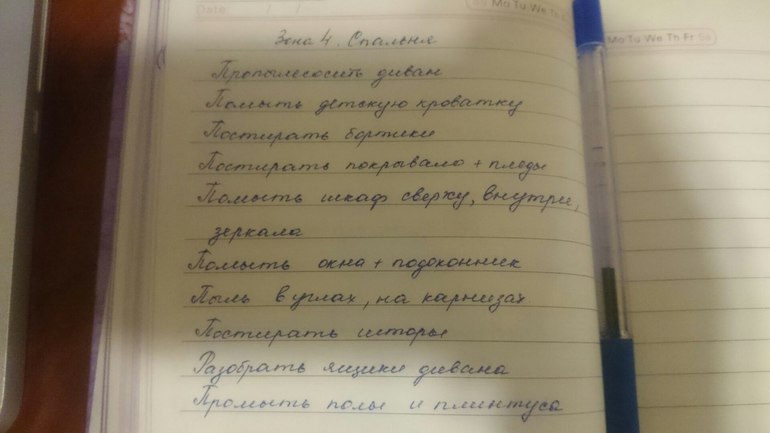 Date: / /
Mo Tu We Th Fr Sa
Зона 4. Спальня
Пропылесосить диван
Помыть детскую кроватку
Постирать бортики
Постирать покрывало + пледы
Помыть шкаф сверху, внутри,
зеркала
Помыть окна + подоконник
Пыль в углах, на карнизах
Постирать шторы
Разобрать ящики дивана
Промыть полы и плинтуса